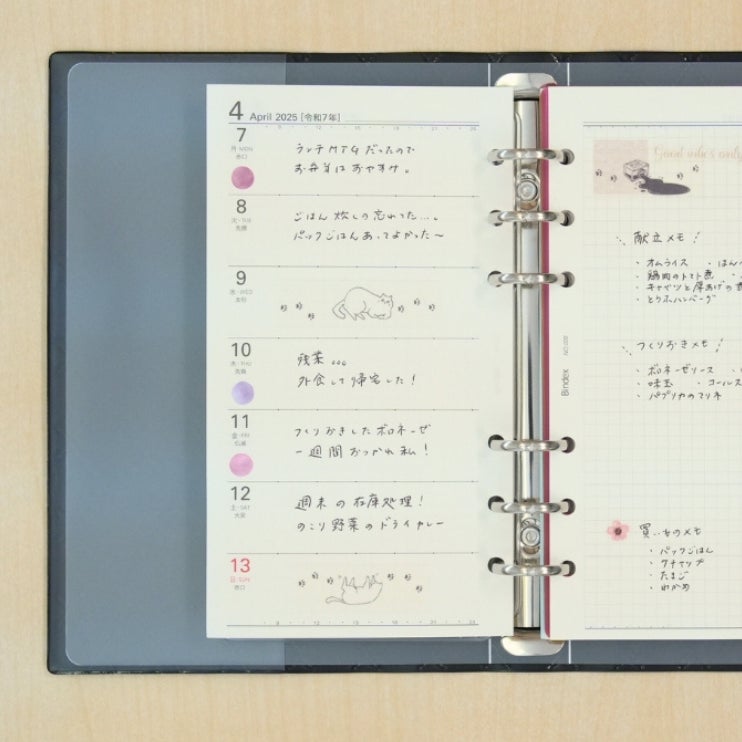 4 April 2025 [令和7年]
8 12 16 20 24
7
月·MON
赤口
ランチMTGだったので
お弁当はおやすみ。
8
火·TUE
先勝
ごはん炊くの忘れてた…。
パックごはんあってよかった〜
9
水·WED
友引
10
木·THU
先負
残業。。。
外食して帰宅した!
11
金·FRI
仏滅
つくりおきしたボロネーゼ
一週間おつかれ私!
12
土·SAT
大安
週末の在庫処理!
のこり野菜のドライカレー
13
日·SUN
赤口
8 12 16 20 24
Bindex
Good vibes only
献立メモ!
・オムライス ・はん
・鶏肉のトマト煮
・キャベツと厚あげの
・とうふハンバーグ
つくりおきメモ!
・ボロネーゼソース
・味玉 ・コールス
・パプリカのマリネ
買いものメモ
・パックごはん
・ケチャップ
・たまご
・わかめ